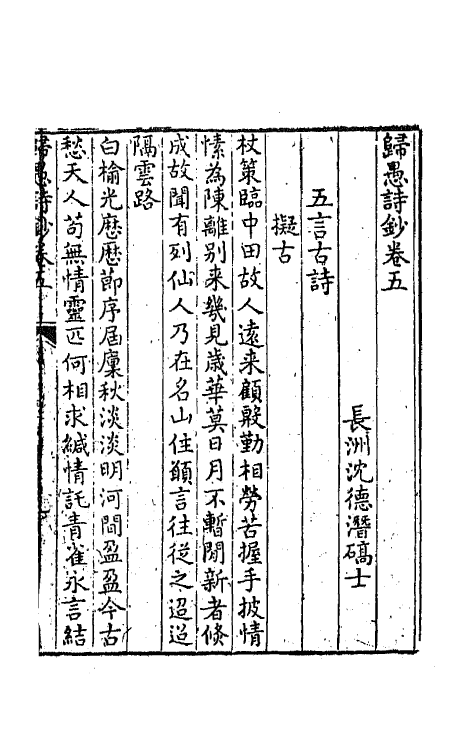 歸愚詩鈔卷五
長洲沈德潛碻士
五言古詩
擬古
杖策臨中田故人遠来顧殷勤相勞苦握手披情
愫為陳離别来幾見歳華莫日月不暫閒新者倐
成故聞有列仙人乃在名山住願言往從之迢迢
隔雲路
白榆光歴歴節序屆廩秋淡淡明河間盈盈今古
愁天人苟無情靈匹何相求緘情託青雀永言結
歸愚詩鈔卷五